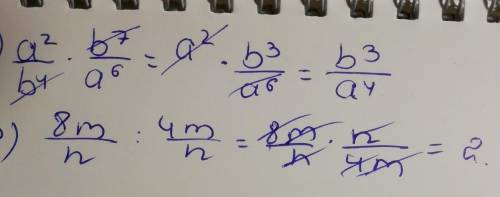 ) a²/b⁴ · b⁷/a⁶ = a² · b³/a⁶ = b³/a⁴
) 8m/n : 4m/n = 8m/n · n/4m = 2.